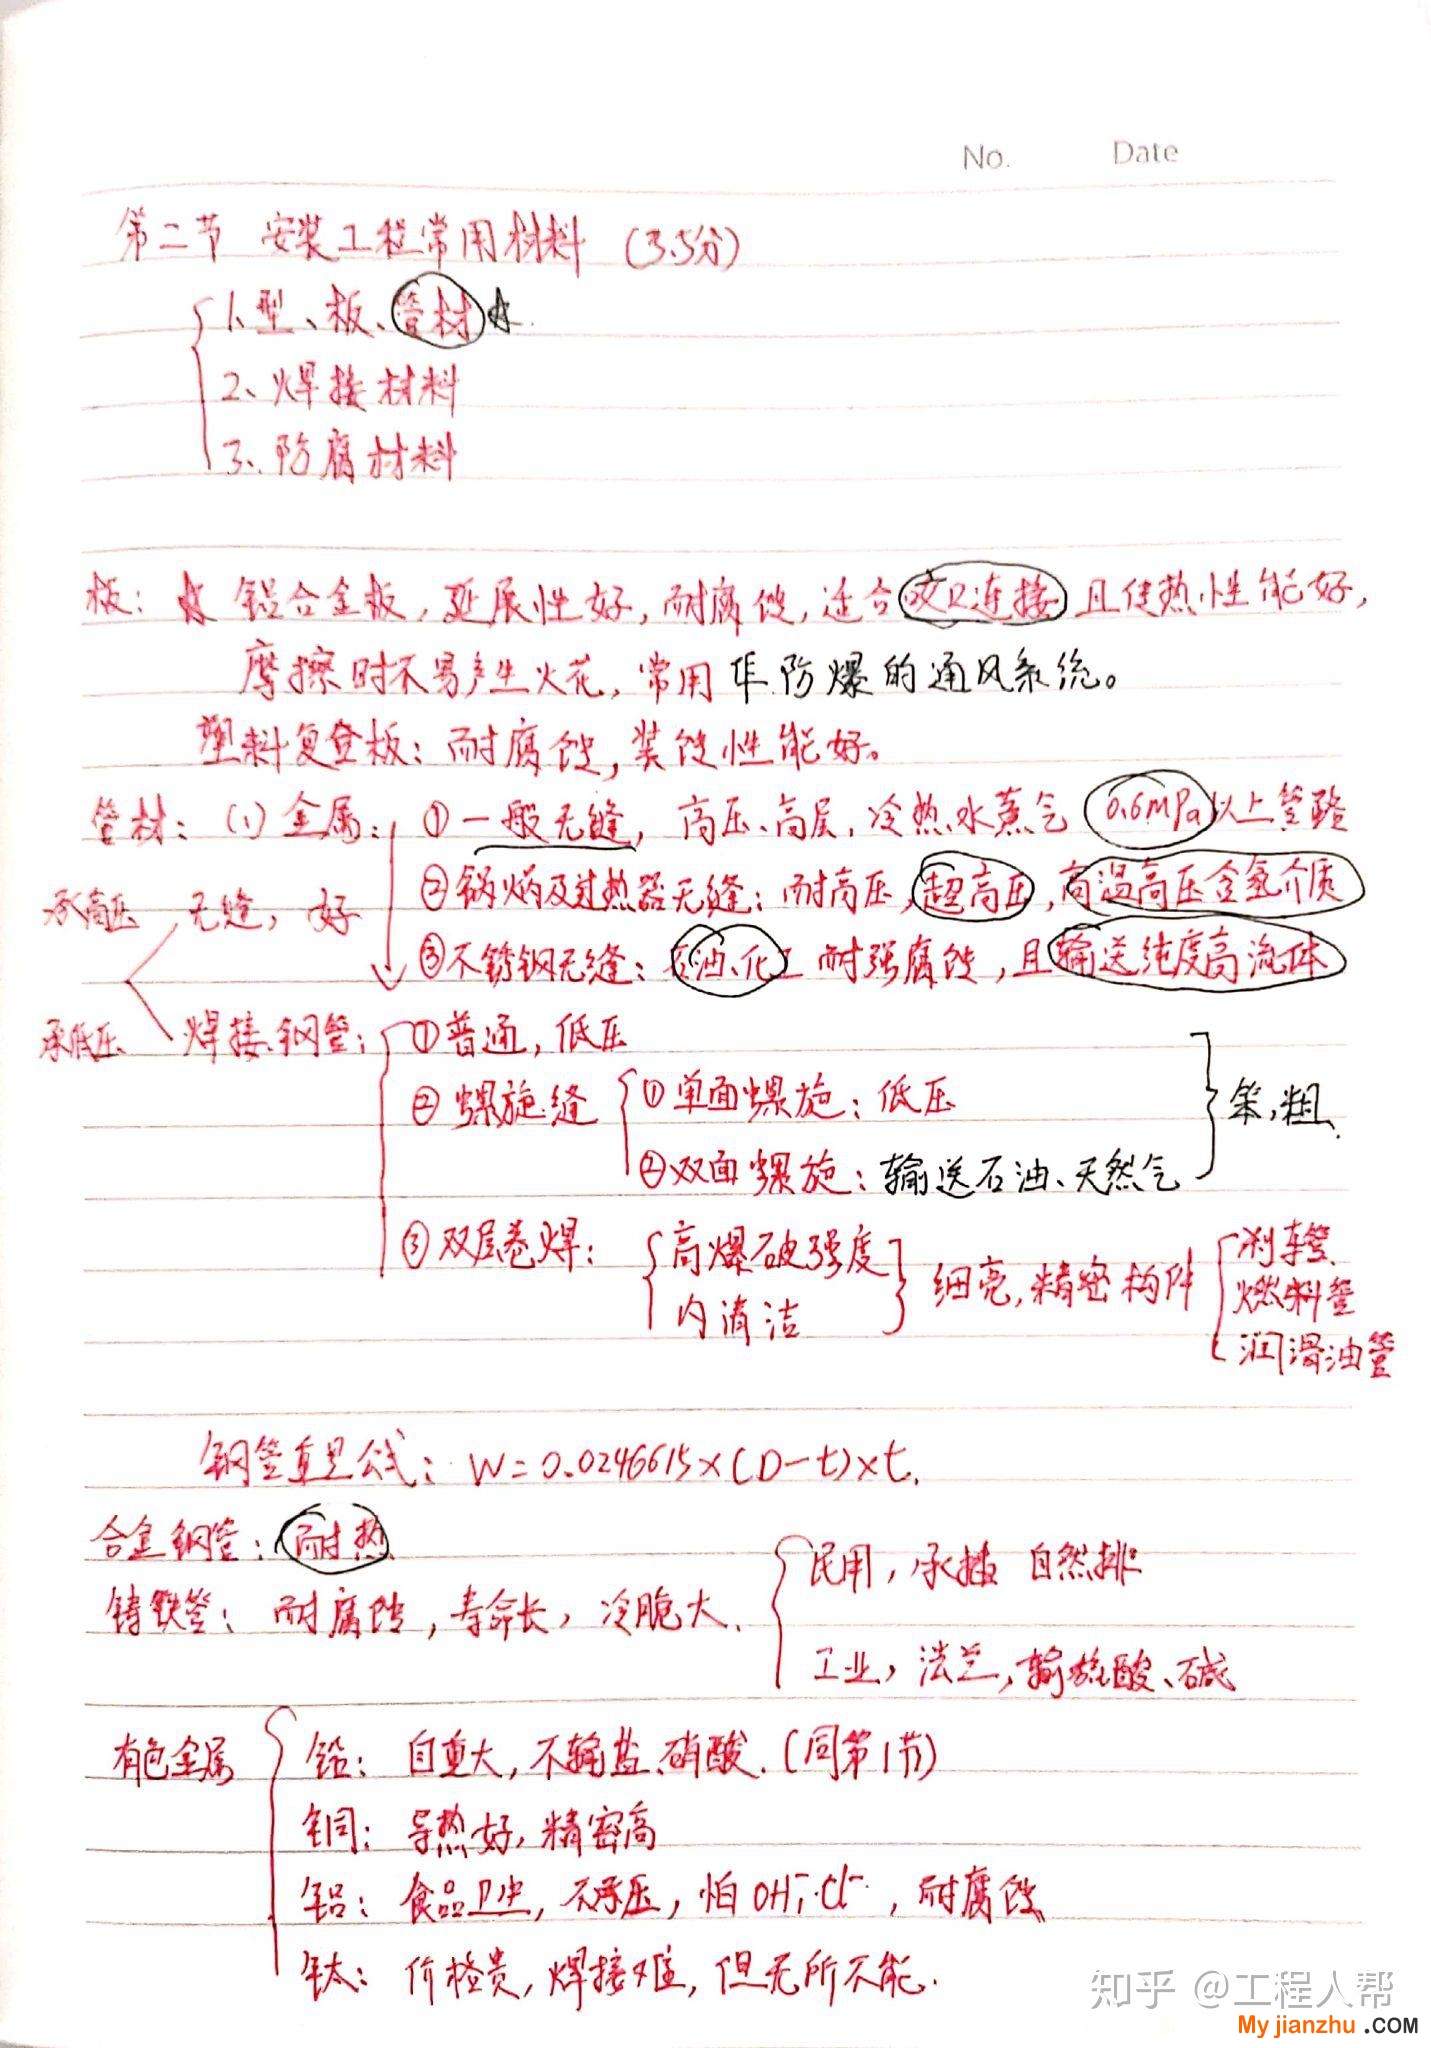 No. Date
第二节 安装工程常用材料 (3.5分)
1、型、板、管材☆
2、焊接材料
3、防腐材料
板：☆ 铝合金板，延展性好，耐腐蚀，适合咬口连接且传热性能好，
摩擦时不易产生火花，常用 防爆的通风系统。
塑料复合板：耐腐蚀，装饰性能好。
管材：(1) 金属：① 一般无缝，高压、高层，冷热水蒸气 0.6MPa以上管路
②锅炉及过热器无缝：耐高压，超高压，高温高压含氢介质
承高压 无缝，好
③不锈钢无缝：石油、化工 耐强腐蚀，且输送纯度高流体
承低压 焊接钢管：①普通，低压
② 螺旋缝 ①单面螺旋：低压
②双面螺旋：输送石油、天然气
笨，粗
③双层卷焊：高爆破强度
内清洁
细亮，精密构件
刹车管
燃料管
润滑油管
钢管重量公式：W=0.0246615×(D-t)×t.
合金钢管：耐热
铸铁管：耐腐蚀，寿命长，冷脆大.
民用，承插 自然排
工业，法兰，输送酸、碱
有色金属
铅：自重大，不输盐、硝酸.(同第1节)
铜：导热好，精密高
铝：食品卫生，不承压，怕OH⁻、Cl⁻，耐腐蚀
钛：价格贵，焊接难，但无所不能.
知乎 @工程人帮
Myjianzhu.COM